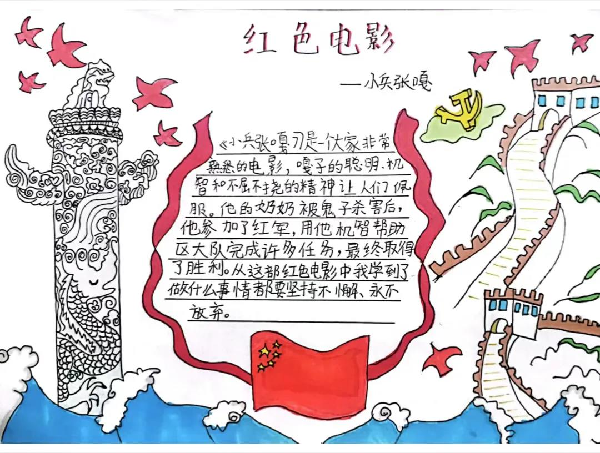 红色电影
——小兵张嘎
《小兵张嘎》是一伙家非常
熟悉的电影，嘎子的聪明、机
智和不屈不挠的精神让人们佩
服。他的奶奶被鬼子杀害后，
他参加了红军，用他机智帮助
区大队完成许多任务，最终取得
了胜利。从这部红色电影中我学到了
做什么事情都要坚持不懈、永不
放弃。